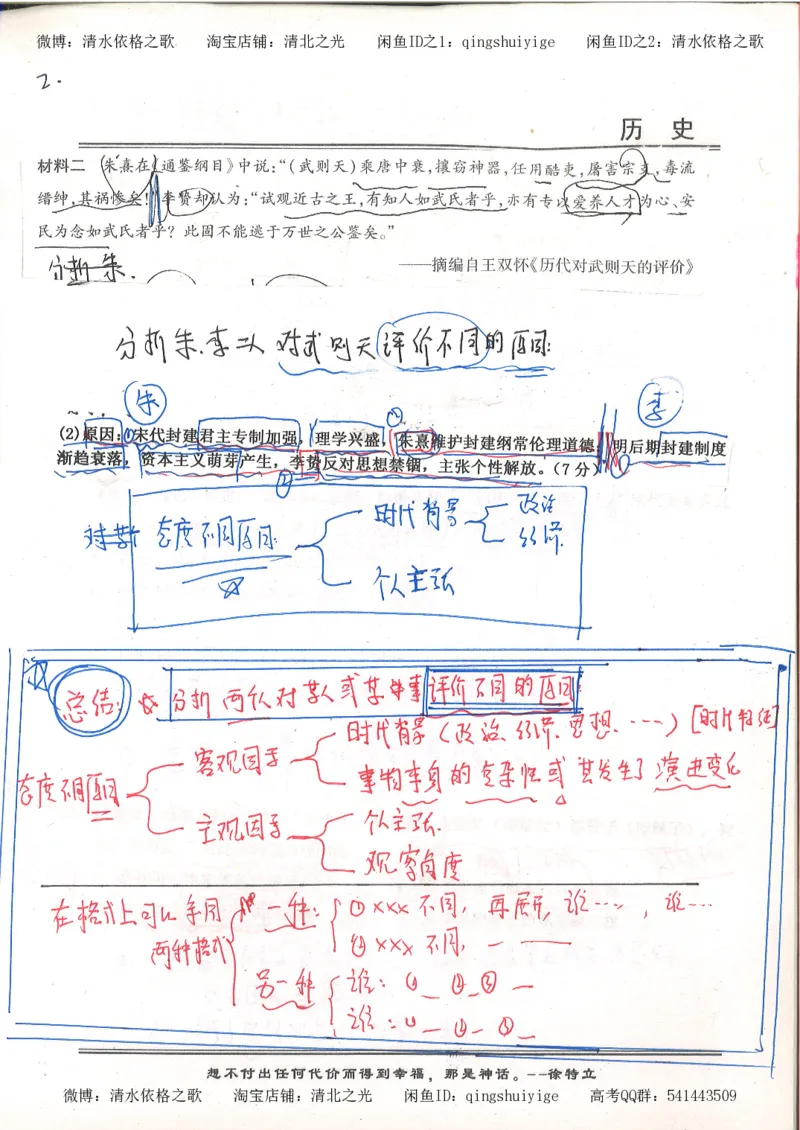 微博：清水依格之歌 淘宝店铺：清北之光 闲鱼ID之1：qingshuiyige 闲鱼ID之2：清水依格之歌
2.
历 史
材料二 朱熹在《通鉴纲目》中说：“（武则天）乘唐中衰，攘窃神器，任用酷吏，屠害宗支，毒流
缙绅，其祸惨矣！”李贽却认为：“试观近古之王，有知人如武氏者乎，亦有专以爱养人才为心、安
民为念如武氏者乎？此固不能逃于万世之公鉴矣。”
分析朱.
——摘编自王双怀《历代对武则天的评价》
分析朱.李二人对武则天评价不同的原因：
朱 李
(2)原因：①宋代封建君主专制加强，理学兴盛，②朱熹维护封建纲常伦理道德；明后期封建制度
渐趋衰落，资本主义萌芽产生，李贽反对思想禁锢，主张个性解放。（7分）
① ②
态度不同原因：
时代背景
政治
经济.
个人主张
总结：☆分析两个人对某人或某件事评价不同的原因：
态度不同原因
客观因子
时代背景（政治、经济、思想、……）[时代特征]
事物本身的复杂性或其发生了演进变化
主观因子
个人主张.
观察角度
在格式上可以采用
两种格式
一种：①×××不同，再展开，谁…，谁…
②×××不同，——
另一种
谁：①_ ②_③_
谁：①_②_③_
想不付出任何代价而得到幸福，那是神话。--徐特立
微博：清水依格之歌 淘宝店铺：清北之光 闲鱼ID：qingshuiyige 高考QQ群：541443509